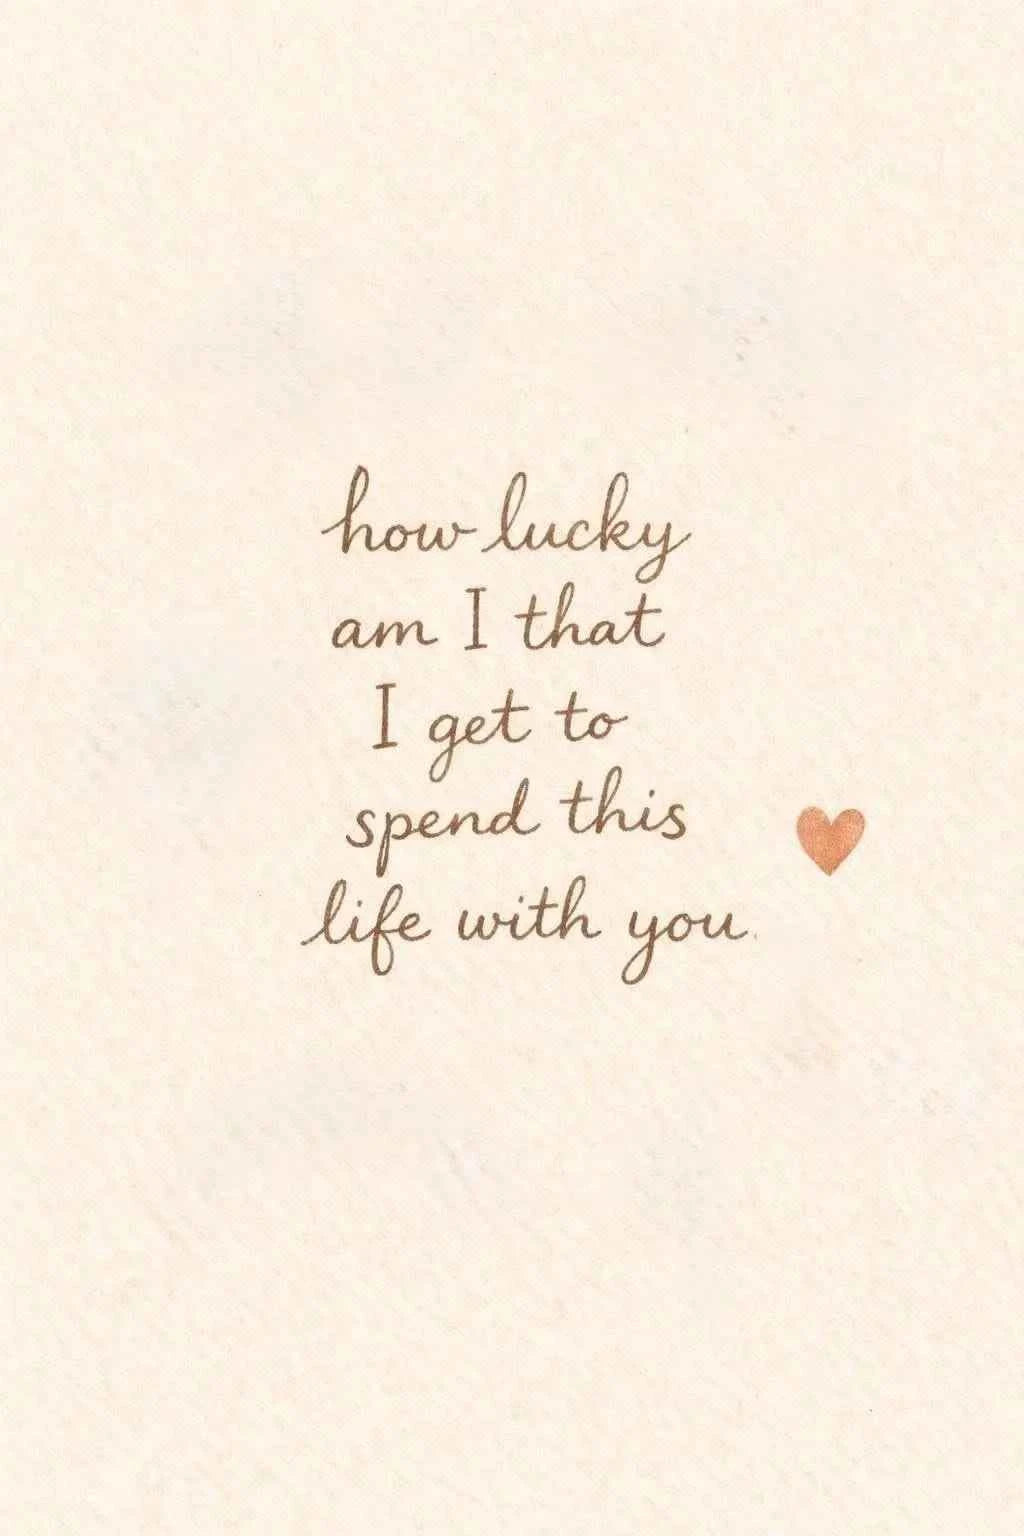 how lucky
am I that
I get to
spend this
life with you.